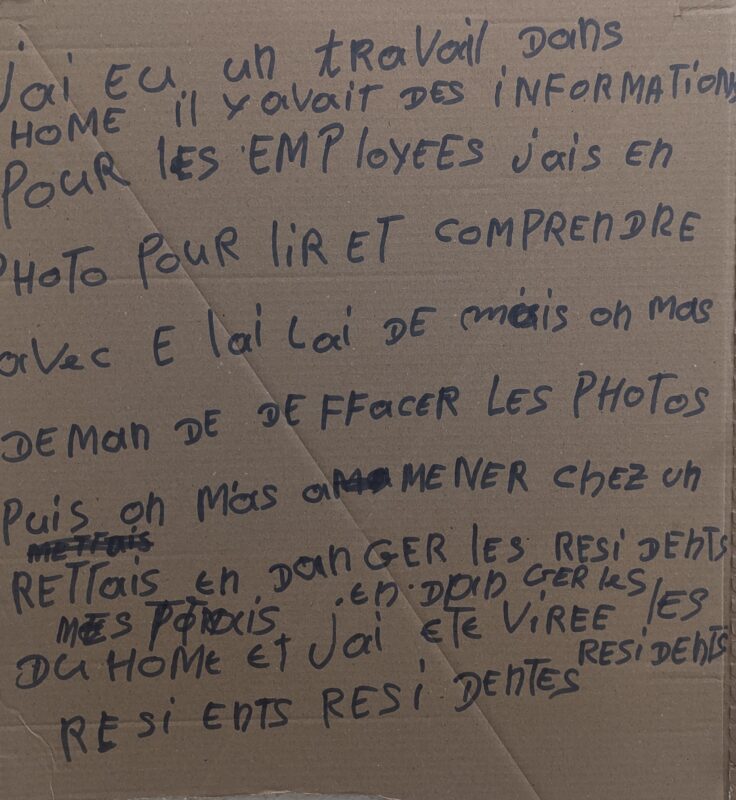 jai EU un TRAVAil DANS
HOME il YAVAiT DES iNFORMATiONS
POUR lES EMPlOYEES jais EN
PHOTO POUR liR ET COMPRENDRE
avec E lai Lai DE mais on mas
DEMAN DE DEFFACER LES PHOTOS
Puis on Mas aMENER CHEZ un
RETTais EN DANGER lES RESiDENTS
EN DAN GER lES
DU HOME ET jai ETE ViREE lES
RESiDENTS
RESi ENTS RESi DENTES